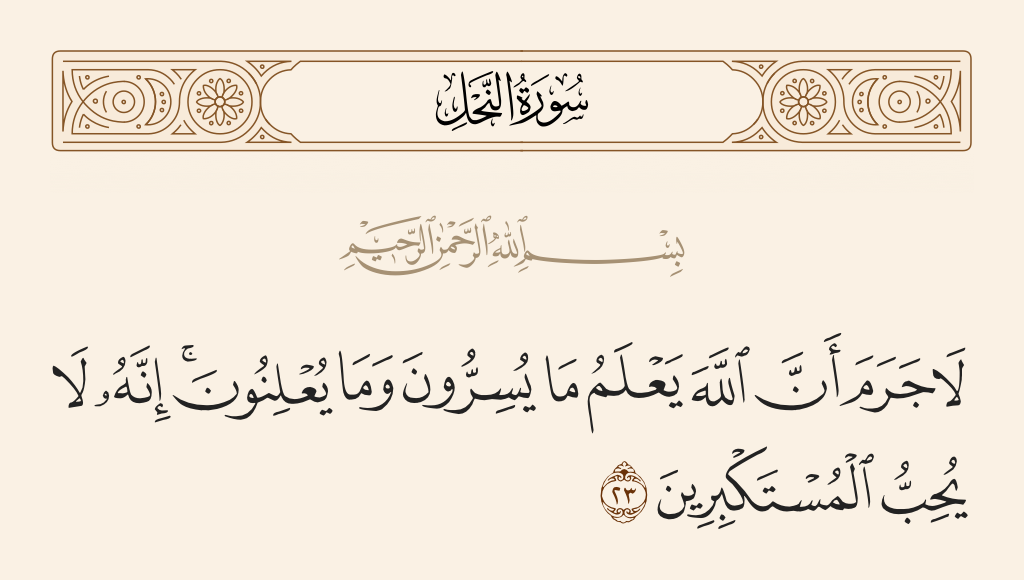 سُورَةُ النَّحْلِ
بِسْمِ ٱللَّهِ ٱلرَّحْمَٰنِ ٱلرَّحِيمِ
لَا جَرَمَ أَنَّ ٱللَّهَ يَعْلَمُ مَا يُسِرُّونَ وَمَا يُعْلِنُونَ ۚ إِنَّهُۥ لَا
يُحِبُّ ٱلْمُسْتَكْبِرِينَ ٢٣